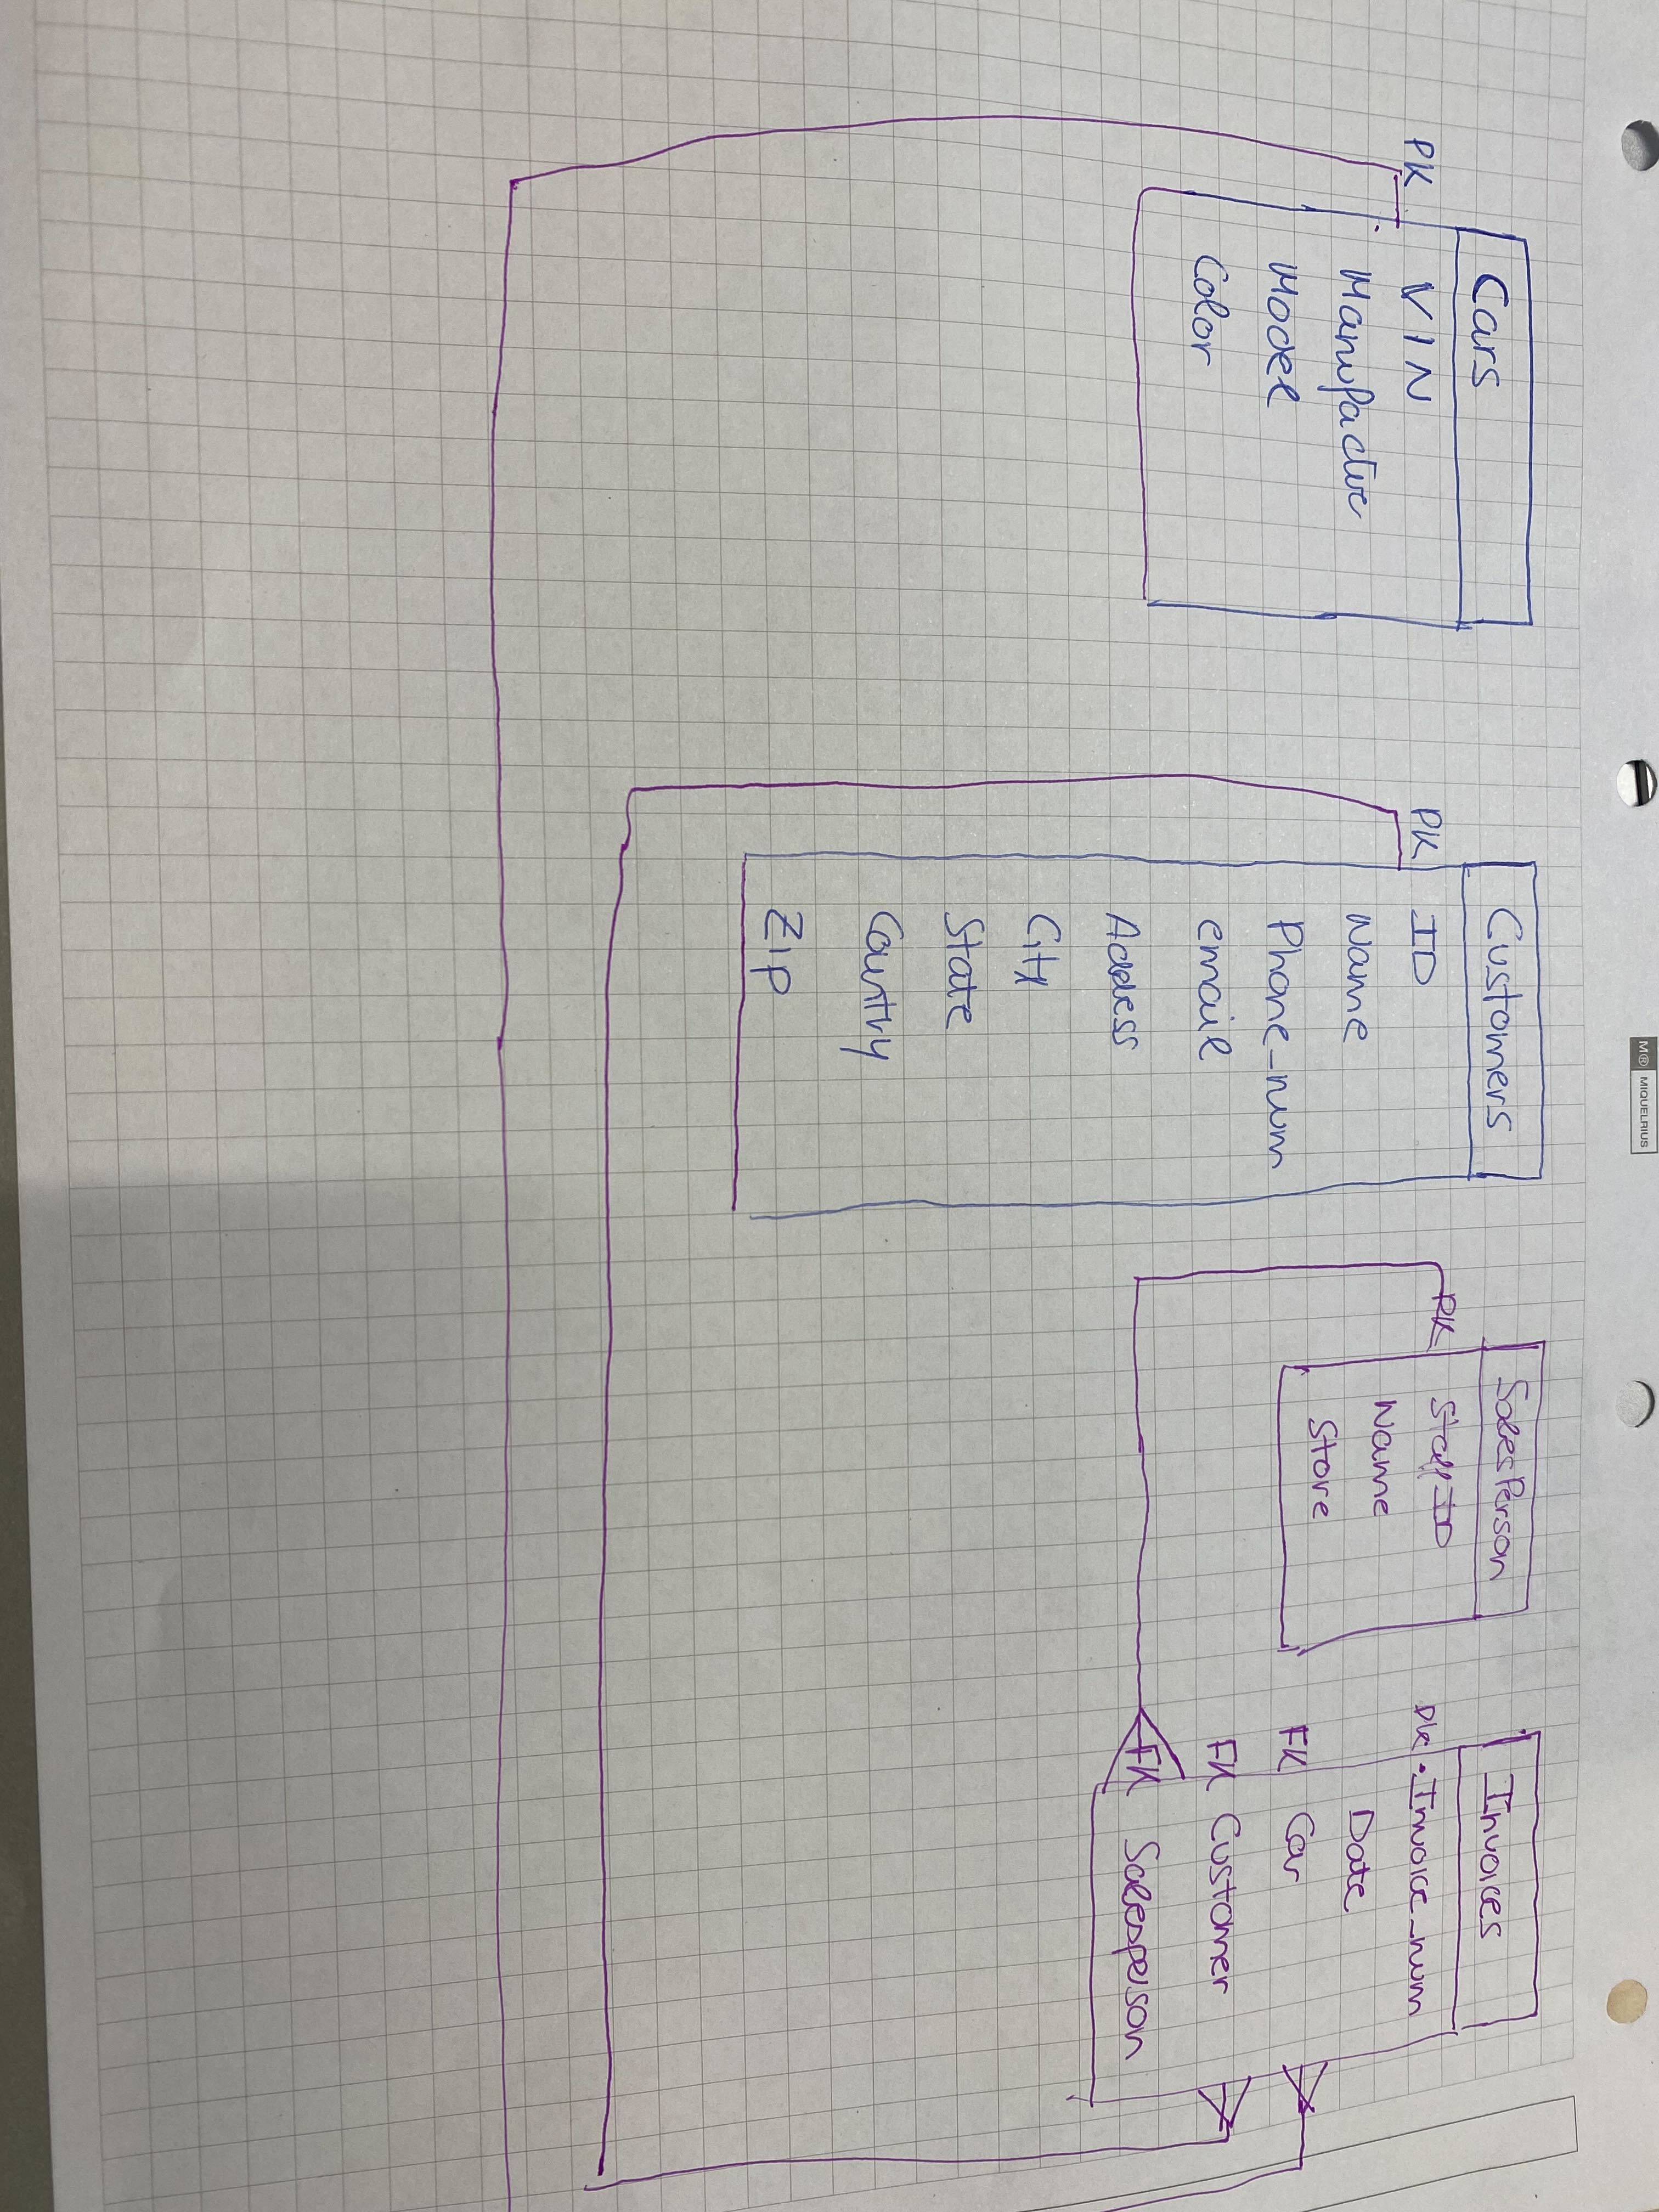 Cars
PK VIN
Manufacture
Model
Color
Customers
PK ID
Name
Phone_num
email
Address
City
State
Country
Zip
SalesPerson
PK Staff ID
Name
Store
Invoices
PK • Invoice_num
Date
FK Car
FK Customer
FK Salesperson
M® MIQUELRIUS